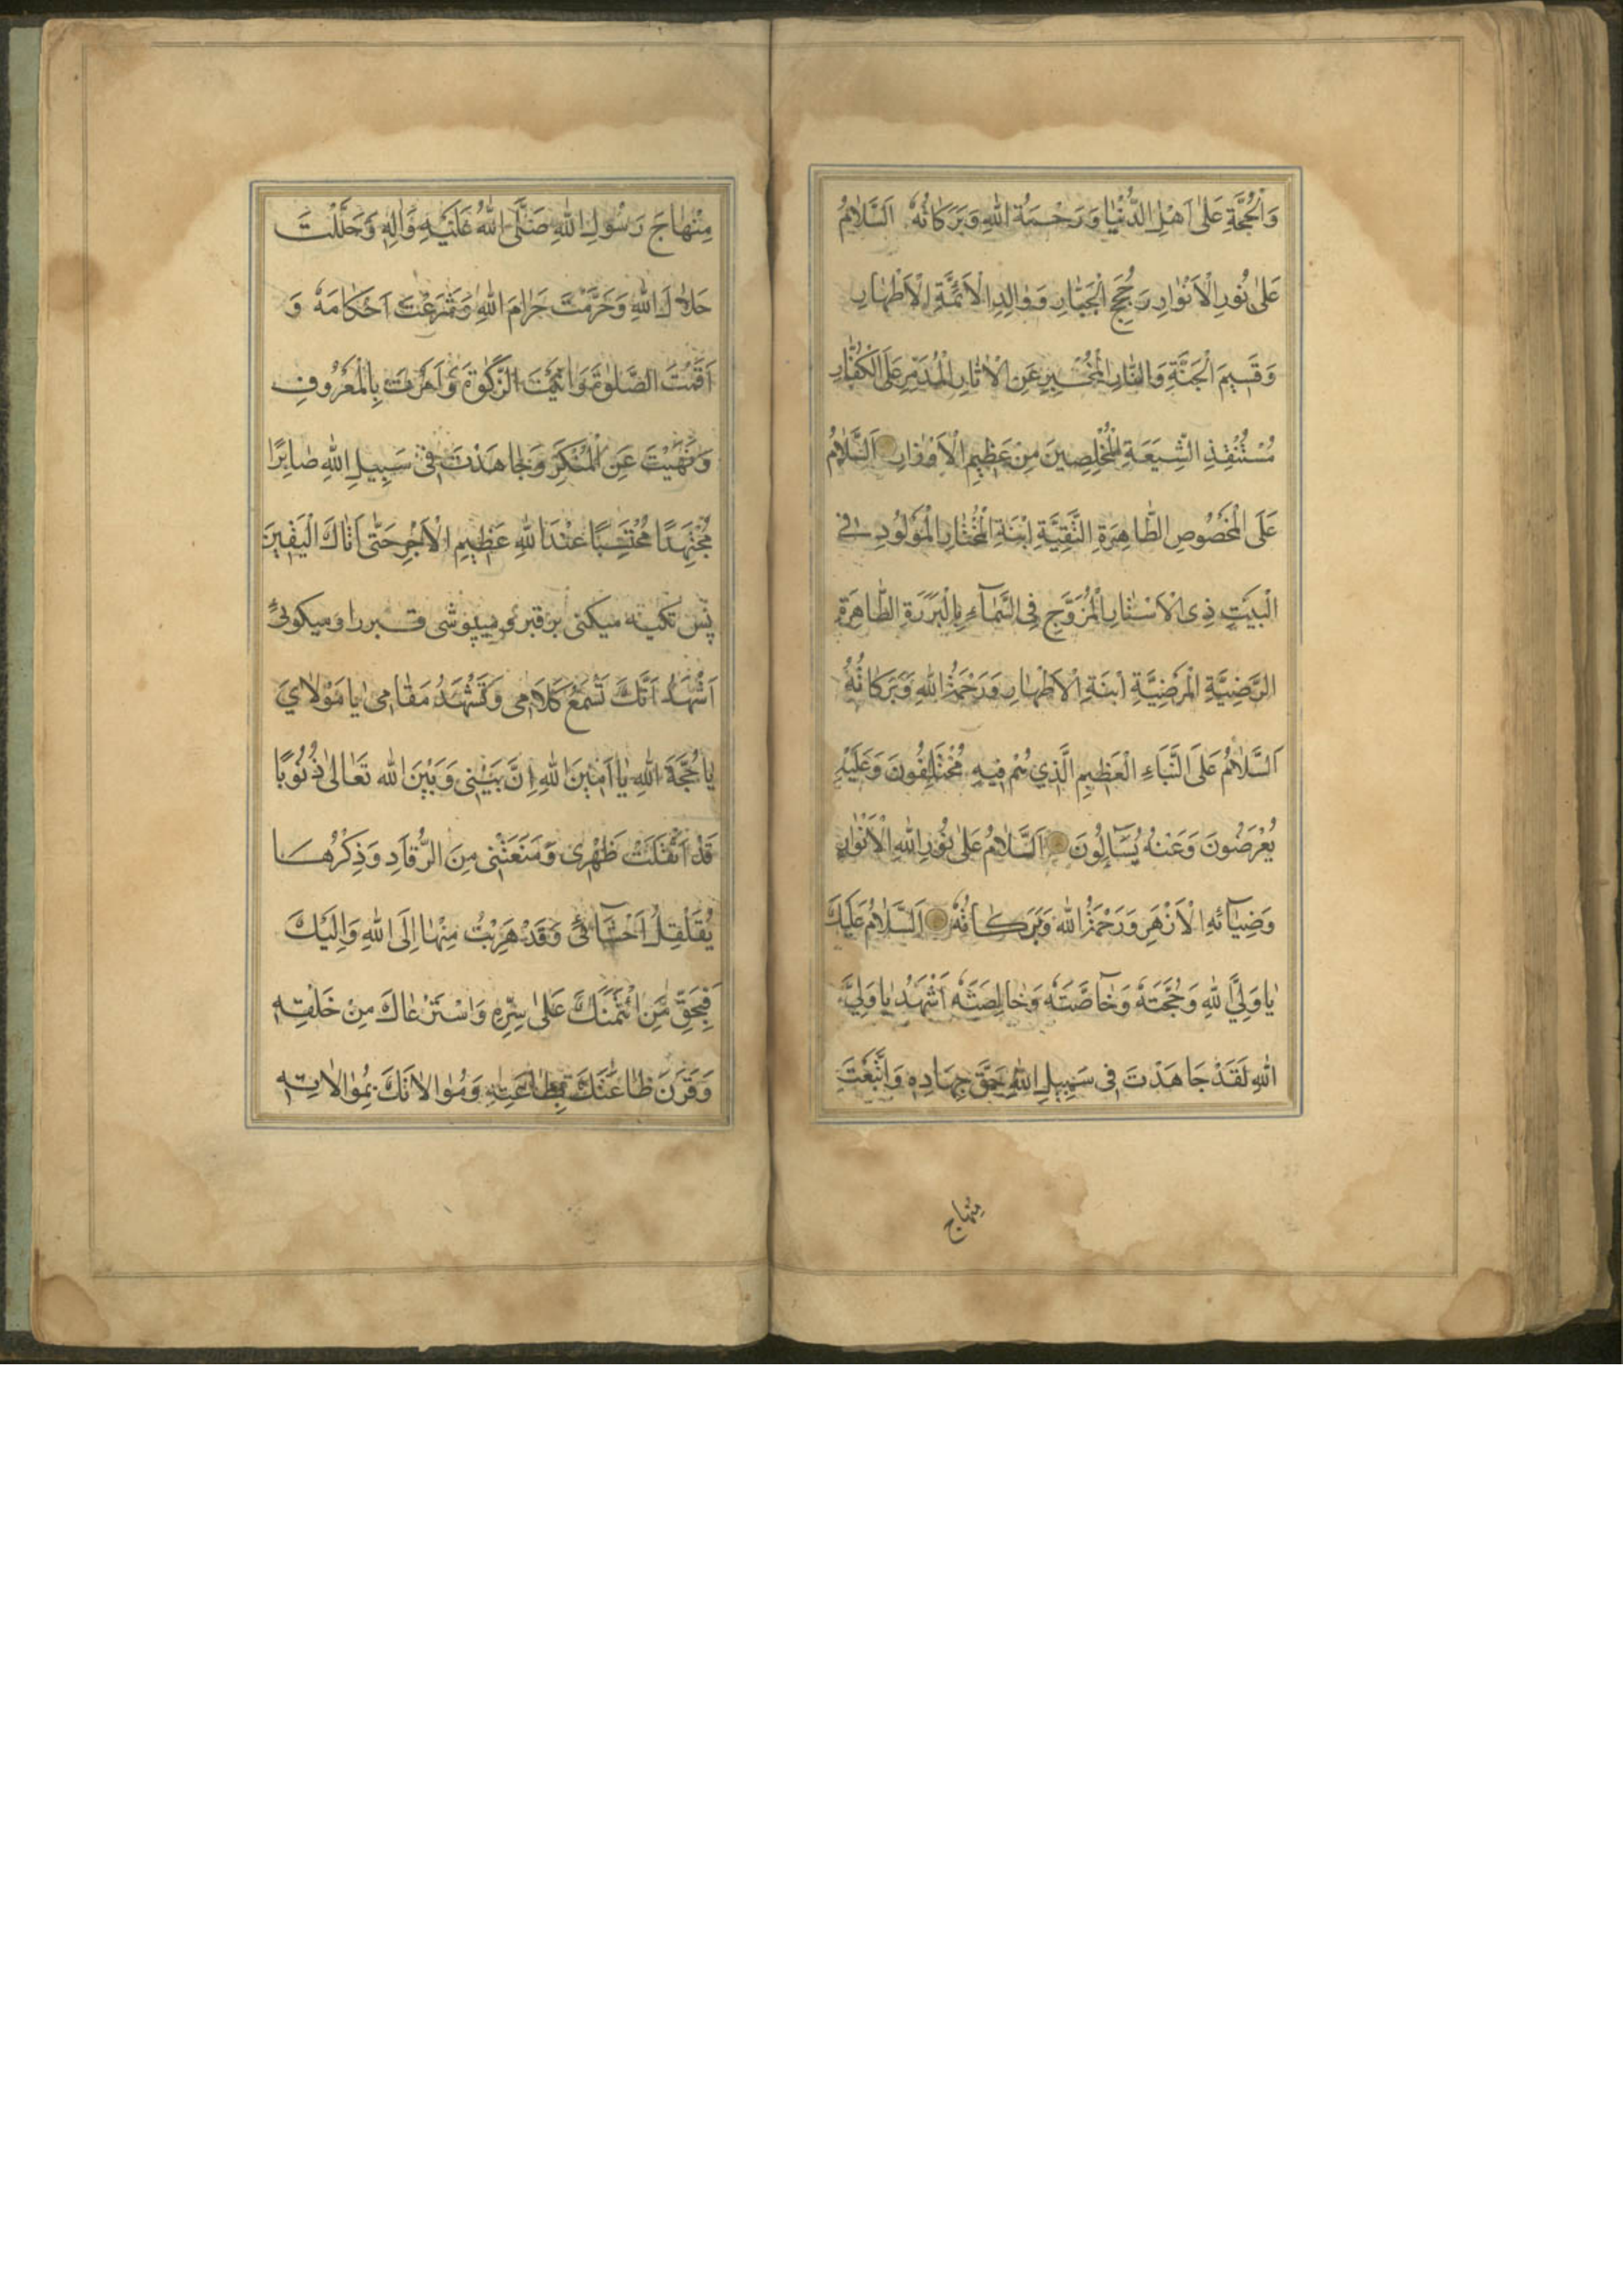 وَالْحُجَّةِ عَلٰى اَهْلِ الدُّنْيٰا وَرَحْمَةُ اللهِ وَبَرَكَاتُهُ اَلسَّلَامُ
عَلٰى نُورِ الْاَنْوٰارِ وَحُجَجِ الْجَبّٰارِ وَوٰالِدِ الْاَئِمَّةِ الْاَطْهٰارِ
وَقَسِيمِ الْجَنَّةِ وَالنّٰارِ الْمُخْبِرِ عَنِ الْاٰثٰارِ الْمُدَمِّرِ عَلَى الْكُفّٰارِ
مُسْتَنْقِذِ الشِّيعَةِ الْمُخْلِصِينَ مِنْ عَظِيمِ الْاَوْزٰارِ اَلسَّلٰامُ
عَلَى الْمَخْصُوصِ الطّٰاهِرَةِ التَّقِيَّةِ ابْنَةِ الْمُخْتٰارِ الْمَوْلُودِ فِي
الْبَيْتِ ذِى الْاَسْتٰارِ الْمُزَوَّجِ فِى السَّمٰآءِ بِالْبَرَرَةِ الطّٰاهِرَةِ
الرَّضِيَّةِ الْمَرْضِيَّةِ ابْنَةِ الْاَطْهٰارِ وَرَحْمَةُ اللهِ وَبَرَكٰاتُهُ
اَلسَّلٰامُ عَلَى النَّبَاءِ الْعَظِيمِ الَّذِي هُمْ فِيهِ مُخْتَلِفُونَ وَعَلَيْهِ
يُعْرَضُونَ وَعَنْهُ يُسْئَلُونَ اَلسَّلٰامُ عَلٰى نُورِ اللهِ الْاَنْوٰارِ
وَضِيٰآئِهِ الْاَزْهَرِ وَرَحْمَةُ اللهِ وَبَرَكٰاتُهُ اَلسَّلٰامُ عَلَيْكَ
يٰا وَلِيَّ اللهِ وَحُجَّتَهُ وَخٰآصَّتَهُ وَخٰالِصَتَهُ اَشْهَدُ يٰا وَلِيَّ
اللهِ لَقَدْ جَاهَدْتَ فِى سَبِيلِ اللهِ حَقَّ جِهٰادِهِ وَاتَّبَعْتَ
مِنْهٰاج
مِنْهٰاجَ رَسُولِ اللهِ صَلَّى اللهُ عَلَيْهِ وَاٰلِهِ وَحَلَّلْتَ
حَلٰالَ اللهِ وَحَرَّمْتَ حَرٰامَ اللهِ وَشَرَعْتَ اَحْكٰامَهُ وَ
اَقَمْتَ الصَّلٰوةَ وَاٰتَيْتَ الزَّكٰوةَ وَاَمَرْتَ بِالْمَعْرُوفِ
وَنَهَيْتَ عَنِ الْمُنْكَرِ وَجٰاهَدْتَ فِى سَبِيلِ اللهِ صٰابِرًا
مُجْتَهِدًا مُحْتَسِبًا عِنْدَ اللهِ عَظِيمَ الْاَجْرِ حَتّٰى اَتٰاكَ الْيَقِينَ
پس تكيه ميكنى بر قبر و ميپوشى قبر را و ميكوئى
اَشْهَدُ اَنَّكَ تَسْمَعُ كَلَامِى وَتَشْهَدُ مَقٰامِى يٰا مَوْلٰايَ
يٰا حُجَّةَ اللهِ يٰا اَمِينَ اللهِ اِنَّ بَيْنِى وَبَيْنَ اللهِ تَعٰالىٰ ذُنُوبًا
قَدْ اَثْقَلَتْ ظَهْرِى وَمَنَعَتْنِى مِنَ الرُّقٰادِ وَذِكْرُهٰا
يُقَلْقِلُ اَحْشٰآئِى وَقَدْ هَرَبْتُ مِنْهٰا اِلَى اللهِ وَاِلَيْكَ
فَبِحَقِّ مَنِ ائْتَمَنَكَ عَلٰى سِرِّهِ وَاسْتَرْعٰاكَ مِنْ خَلْقِهِ
وَقَرَنَ طٰاعَتَكَ بِطٰاعَتِهِ وَمُوٰالٰاتَكَ بِمُوٰالٰاتِهِ